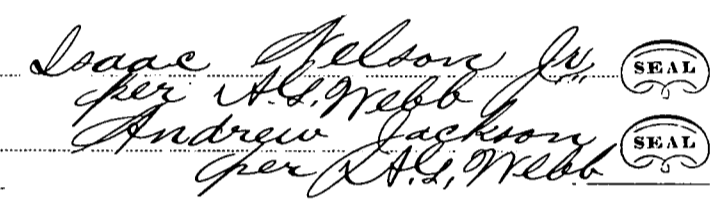 Isaac Nelson Jr. SEAL
per A.G. Webb
Andrew Jackson SEAL
per A.G. Webb